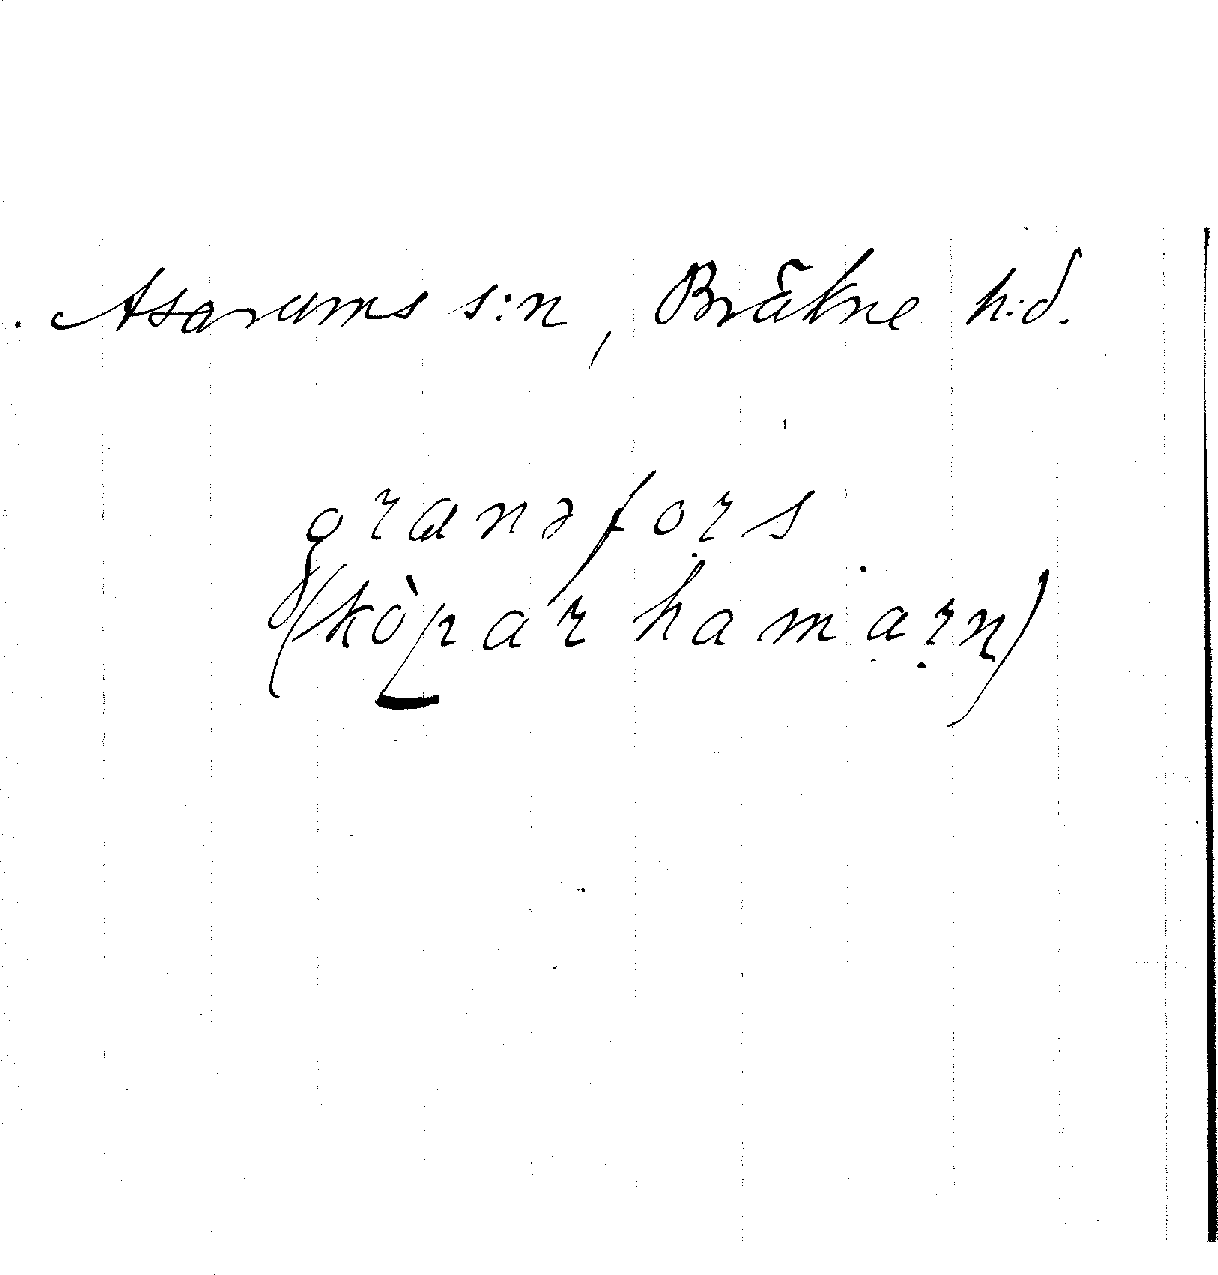 Asarums s:n, Bräkne h:d.
grænəfors
(kòpar hamarn)